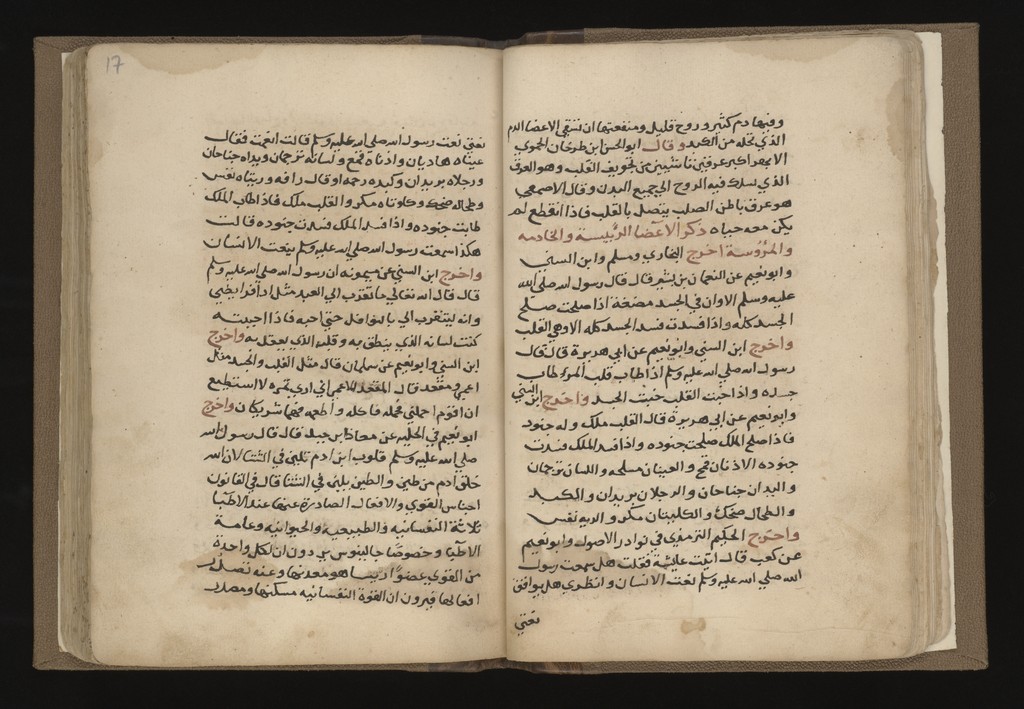 وفيها دم كثير وروح قليل ومنفعتها ان تسقي الاعضا الدم
الذي تحمله من الكبد وقال ابو الحسن ابن طرخان الحموي
الابهر اكبر عرقين ناشيين من تجويف القلب وهو العرق
الذي تسلك فيه الروح الي جميع البدن وقال الاصمعي
هو عرق باطن الصلب يتصل بالقلب فاذا انقطع لم
يكن معه حياه ذكر الاعضا الرئيسة والخادمه
والمرؤسة اخرج البخاري ومسلم وابن السني
وابو نعيم عن النعمان بن بشير قال قال رسول الله صلي الله
عليه وسلم الا وان في الجسد مضغة اذا صلحت صلح
الجسد كله واذا فسدت فسد الجسد كله الا وهي القلب
واخرج ابن السني وابو نعيم عن ابي هريرة قال قال
رسول الله صلي الله عليه وسلم اذا طاب قلب المرء طاب
جسده واذا خبث القلب خبث الجسد واخرج ابن السني
وابو نعيم عن ابي هريرة قال القلب ملك وله جنود
فاذا صلح الملك صلحت جنوده واذا فسد الملك فسدت
جنوده الاذنان قمع والعينان مسلحه واللسان ترجمان
واليدان جناحان والرجلان بريدان والكبد
والطحال ضحك والكليتان مكر والريه نفس
واخرج الحكيم الترمذي في نوادر الاصول وابو نعيم
عن كعب قال اتيت عايشة فقلت هل سمعت رسول
الله صلي الله عليه وسلم نعت الانسان وانظري هل يوافق
نعتي
17
نعتي نعت رسول الله صلي الله عليه وسلم قالت انعت فقال
عيناه هاديان واذناه قمع ولسانه ترجمان ويداه جناحان
ورجلاه بريدان وكبده رحمه او قال رافه وريتاه نفس
وطحاله ضحك وكلوتاه مكر والقلب ملك فاذا طاب الملك
طابت جنوده واذا فسد الملك فسدت جنوده قالت
هكذا سمعت رسول الله صلي الله عليه وسلم ينعت الانسان
واخرج ابن السني عن ميمونه ان رسول الله صلي الله عليه وسلم
قال قال الله تعالي ما تقرب الي العبد مثل اداء فرايضي
وانه ليتقرب الي بالنوافل حتي احبه فاذا احببته
كنت لسانه الذي ينطق به وقلبه الذي يعقل به واخرج
ابن السني وابو نعيم عن سلمان قال مثل القلب والجسد مثل
اعمي ومقعد قال المقعد للاعمي اني اري ثمره لا استطيع
ان اقوم احملني فحمله فاكل واطعمه فهما شريكان واخرج
ابو نعيم في الحليه عن معاذ ابن جبل قال قال رسول الله
صلي الله عليه وسلم قلوب ابن ادم تلين في الشتا لان الله
خلق ادم من طين والطين يلين في الشتا قال في القانون
اجناس القوي والافعال الصادرة عنها عند الاطبا
ثلاثة النفسانيه والطبيعيه والحيوانيه وعامة
الاطبا وخصوصا جالينوس يرون ان لكل واحدة
من القوي عضوا رييسا هو معدنها وعنه تصدر
افعالها فيرون ان القوة النفسانيه مسكنها ومصدر